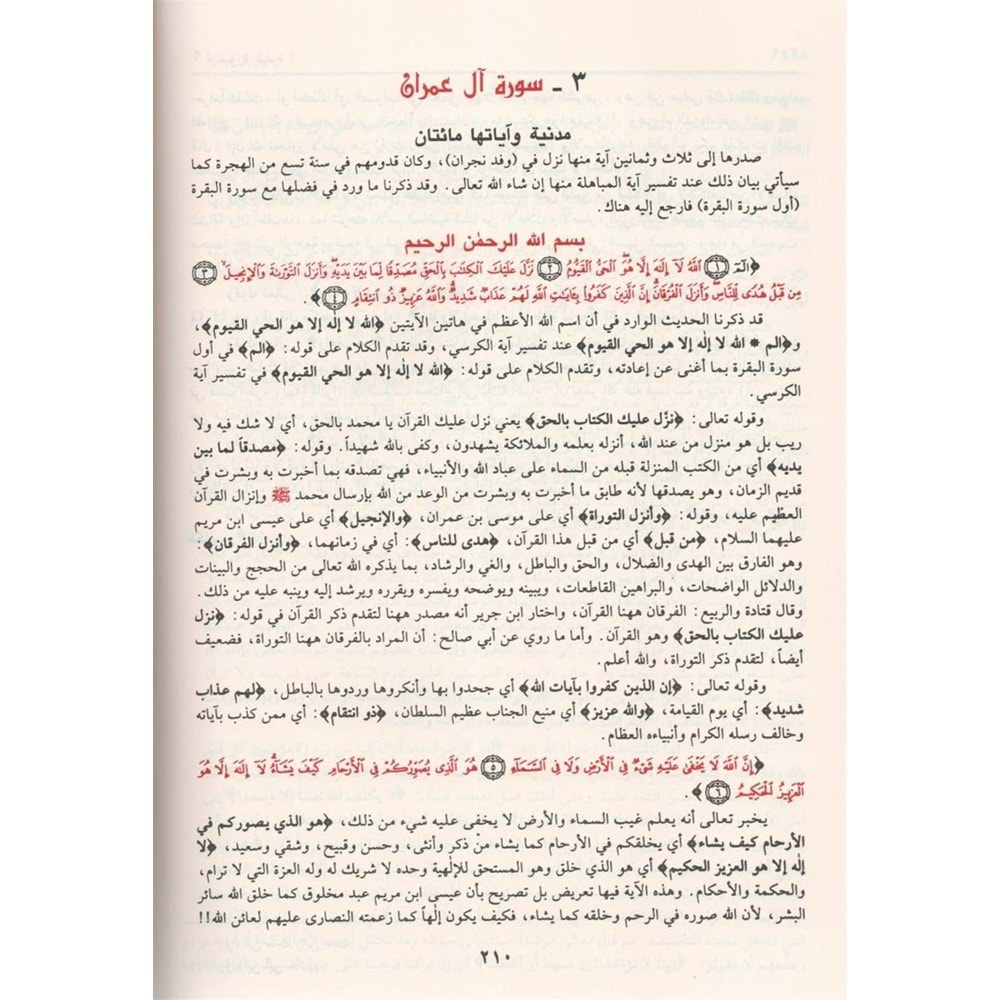 ٣ - سورة آل عمران
مدنية وآياتها مائتان
صدرها إلى ثلاث وثمانين آية منها نزل في (وفد نجران)، وكان قدومهم في سنة تسع من الهجرة كما
سيأتي بيان ذلك عند تفسير آية المباهلة منها إن شاء الله تعالى. وقد ذكرنا ما ورد في فضلها مع سورة البقرة
(أول سورة البقرة) فارجع إليه هناك.
بسم الله الرحمٰن الرحيم
﴿الٓمٓ ۝١ ٱللَّهُ لَآ إِلَٰهَ إِلَّا هُوَ ٱلْحَىُّ ٱلْقَيُّومُ ۝٢ نَزَّلَ عَلَيْكَ ٱلْكِتَٰبَ بِٱلْحَقِّ مُصَدِّقًا لِّمَا بَيْنَ يَدَيْهِ وَأَنزَلَ ٱلتَّوْرَىٰةَ وَٱلْإِنجِيلَ ۝٣
مِن قَبْلُ هُدًى لِّلنَّاسِ وَأَنزَلَ ٱلْفُرْقَانَ إِنَّ ٱلَّذِينَ كَفَرُوا۟ بِـَٔايَٰتِ ٱللَّهِ لَهُمْ عَذَابٌ شَدِيدٌ وَٱللَّهُ عَزِيزٌ ذُو ٱنتِقَامٍ ۝٤﴾.
قد ذكرنا الحديث الوارد في أن اسم الله الأعظم في هاتين الآيتين ﴿الله لا إلٰه إلا هو الحي القيوم﴾،
و﴿الم * الله لا إلٰه إلا هو الحي القيوم﴾ عند تفسير آية الكرسي، وقد تقدم الكلام على قوله: ﴿الم﴾ في أول
سورة البقرة بما أغنى عن إعادته، وتقدم الكلام على قوله: ﴿الله لا إلٰه إلا هو الحي القيوم﴾ في تفسير آية
الكرسي.
وقوله تعالى: ﴿نزّل عليك الكتاب بالحق﴾ يعني نزل عليك القرآن يا محمد بالحق، أي لا شك فيه ولا
ريب بل هو منزل من عند الله، أنزله بعلمه والملائكة يشهدون، وكفى بالله شهيداً. وقوله: ﴿مصدقاً لما بين
يديه﴾ أي من الكتب المنزلة قبله من السماء على عباد الله والأنبياء، فهي تصدقه بما أخبرت به وبشرت في
قديم الزمان، وهو يصدقها لأنه طابق ما أخبرت به وبشرت من الوعد من الله بإرسال محمد ﷺ وإنزال القرآن
العظيم عليه، وقوله: ﴿وأنزل التوراة﴾ أي على موسى بن عمران، ﴿والإنجيل﴾ أي على عيسى ابن مريم
عليهما السلام، ﴿من قبل﴾ أي من قبل هذا القرآن، ﴿هدى للناس﴾: أي في زمانهما، ﴿وأنزل الفرقان﴾:
وهو الفارق بين الهدى والضلال، والحق والباطل، والغي والرشاد، بما يذكره الله تعالى من الحجج والبينات
والدلائل الواضحات، والبراهين القاطعات، ويبينه ويوضحه ويفسره ويقرره ويرشد إليه وينبه عليه من ذلك.
وقال قتادة والربيع: الفرقان ههنا القرآن، واختار ابن جرير أنه مصدر ههنا لتقدم ذكر القرآن في قوله: ﴿نزل
عليك الكتاب بالحق﴾ وهو القرآن. وأما ما روي عن أبي صالح: أن المراد بالفرقان ههنا التوراة، فضعيف
أيضاً، لتقدم ذكر التوراة، والله أعلم.
وقوله تعالى: ﴿إن الذين كفروا بآيات الله﴾ أي جحدوا بها وأنكروها وردوها بالباطل، ﴿لهم عذاب
شديد﴾: أي يوم القيامة، ﴿والله عزيز﴾ أي منيع الجناب عظيم السلطان، ﴿ذو انتقام﴾: أي ممن كذب بآياته
وخالف رسله الكرام وأنبياءه العظام.
﴿إِنَّ ٱللَّهَ لَا يَخْفَىٰ عَلَيْهِ شَىْءٌ فِى ٱلْأَرْضِ وَلَا فِى ٱلسَّمَآءِ ۝٥ هُوَ ٱلَّذِى يُصَوِّرُكُمْ فِى ٱلْأَرْحَامِ كَيْفَ يَشَآءُ لَآ إِلَٰهَ إِلَّا هُوَ
ٱلْعَزِيزُ ٱلْحَكِيمُ ۝٦﴾.
يخبر تعالى أنه يعلم غيب السماء والأرض لا يخفى عليه شيء من ذلك، ﴿هو الذي يصوركم في
الأرحام كيف يشاء﴾ أي يخلقكم في الأرحام كما يشاء من ذكر وأنثى، وحسن وقبيح، وشقي وسعيد، ﴿لا
إلٰه إلا هو العزيز الحكيم﴾ أي هو الذي خلق وهو المستحق للإلٰهية وحده لا شريك له وله العزة التي لا ترام،
والحكمة والأحكام. وهذه الآية فيها تعريض بل تصريح بأن عيسى ابن مريم عبد مخلوق كما خلق الله سائر
البشر، لأن الله صوره في الرحم وخلقه كما يشاء، فكيف يكون إلٰهاً كما زعمته النصارى عليهم لعائن الله!!
٢١٠